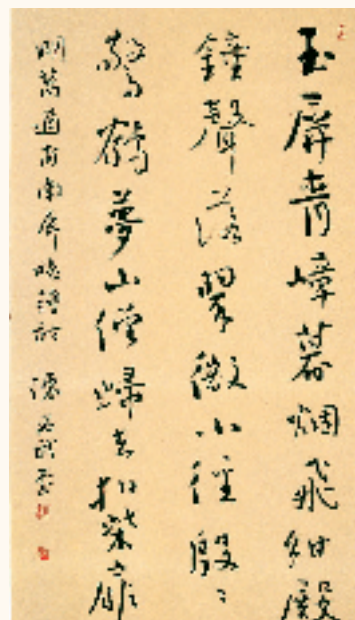 玉屏青嶂暮烟飛紺殿
鐘聲落翠微小徑殷〻
驚鶴夢山僧歸去扣柴扉
明萬達甫南屏晚鐘詩